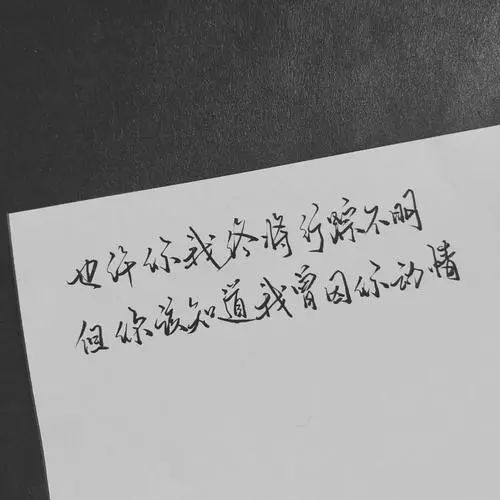 也许你我终将行踪不明
但你该知道我曾因你动情